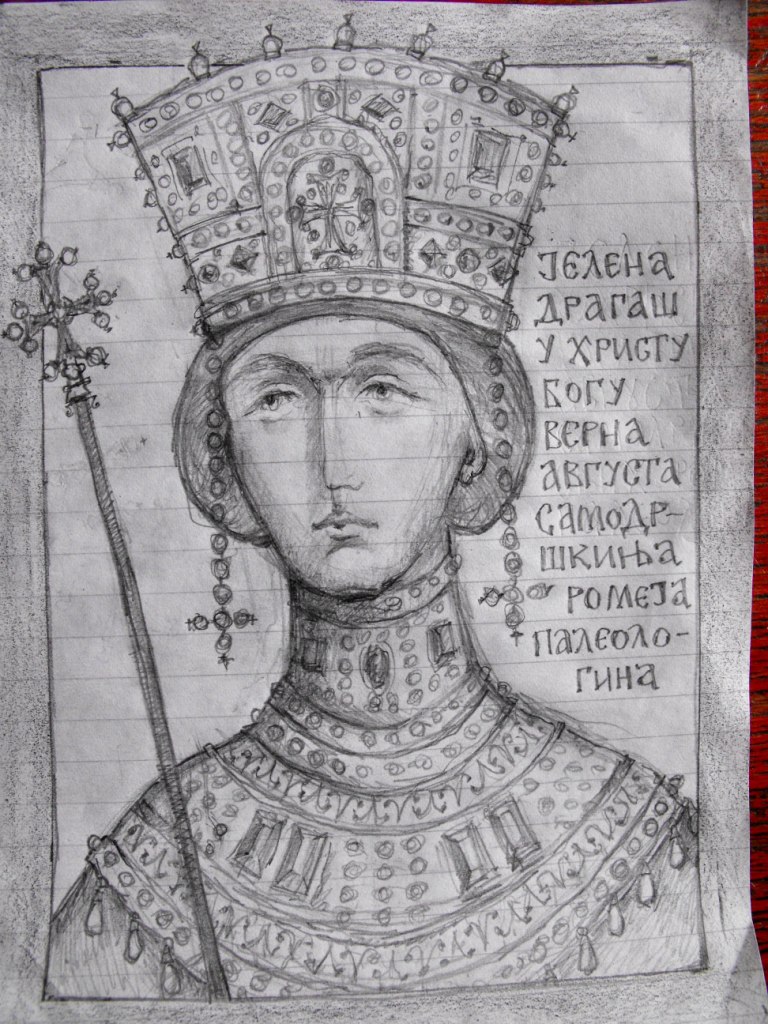 ЈЕЛЕНА
ДРАГАШ
У ХРИСТУ
БОГУ
ВЕРНА
АВГУСТА
САМОДР-
ШКИЊА
РОМЕЈА
ПАЛЕОЛО-
ГИНА